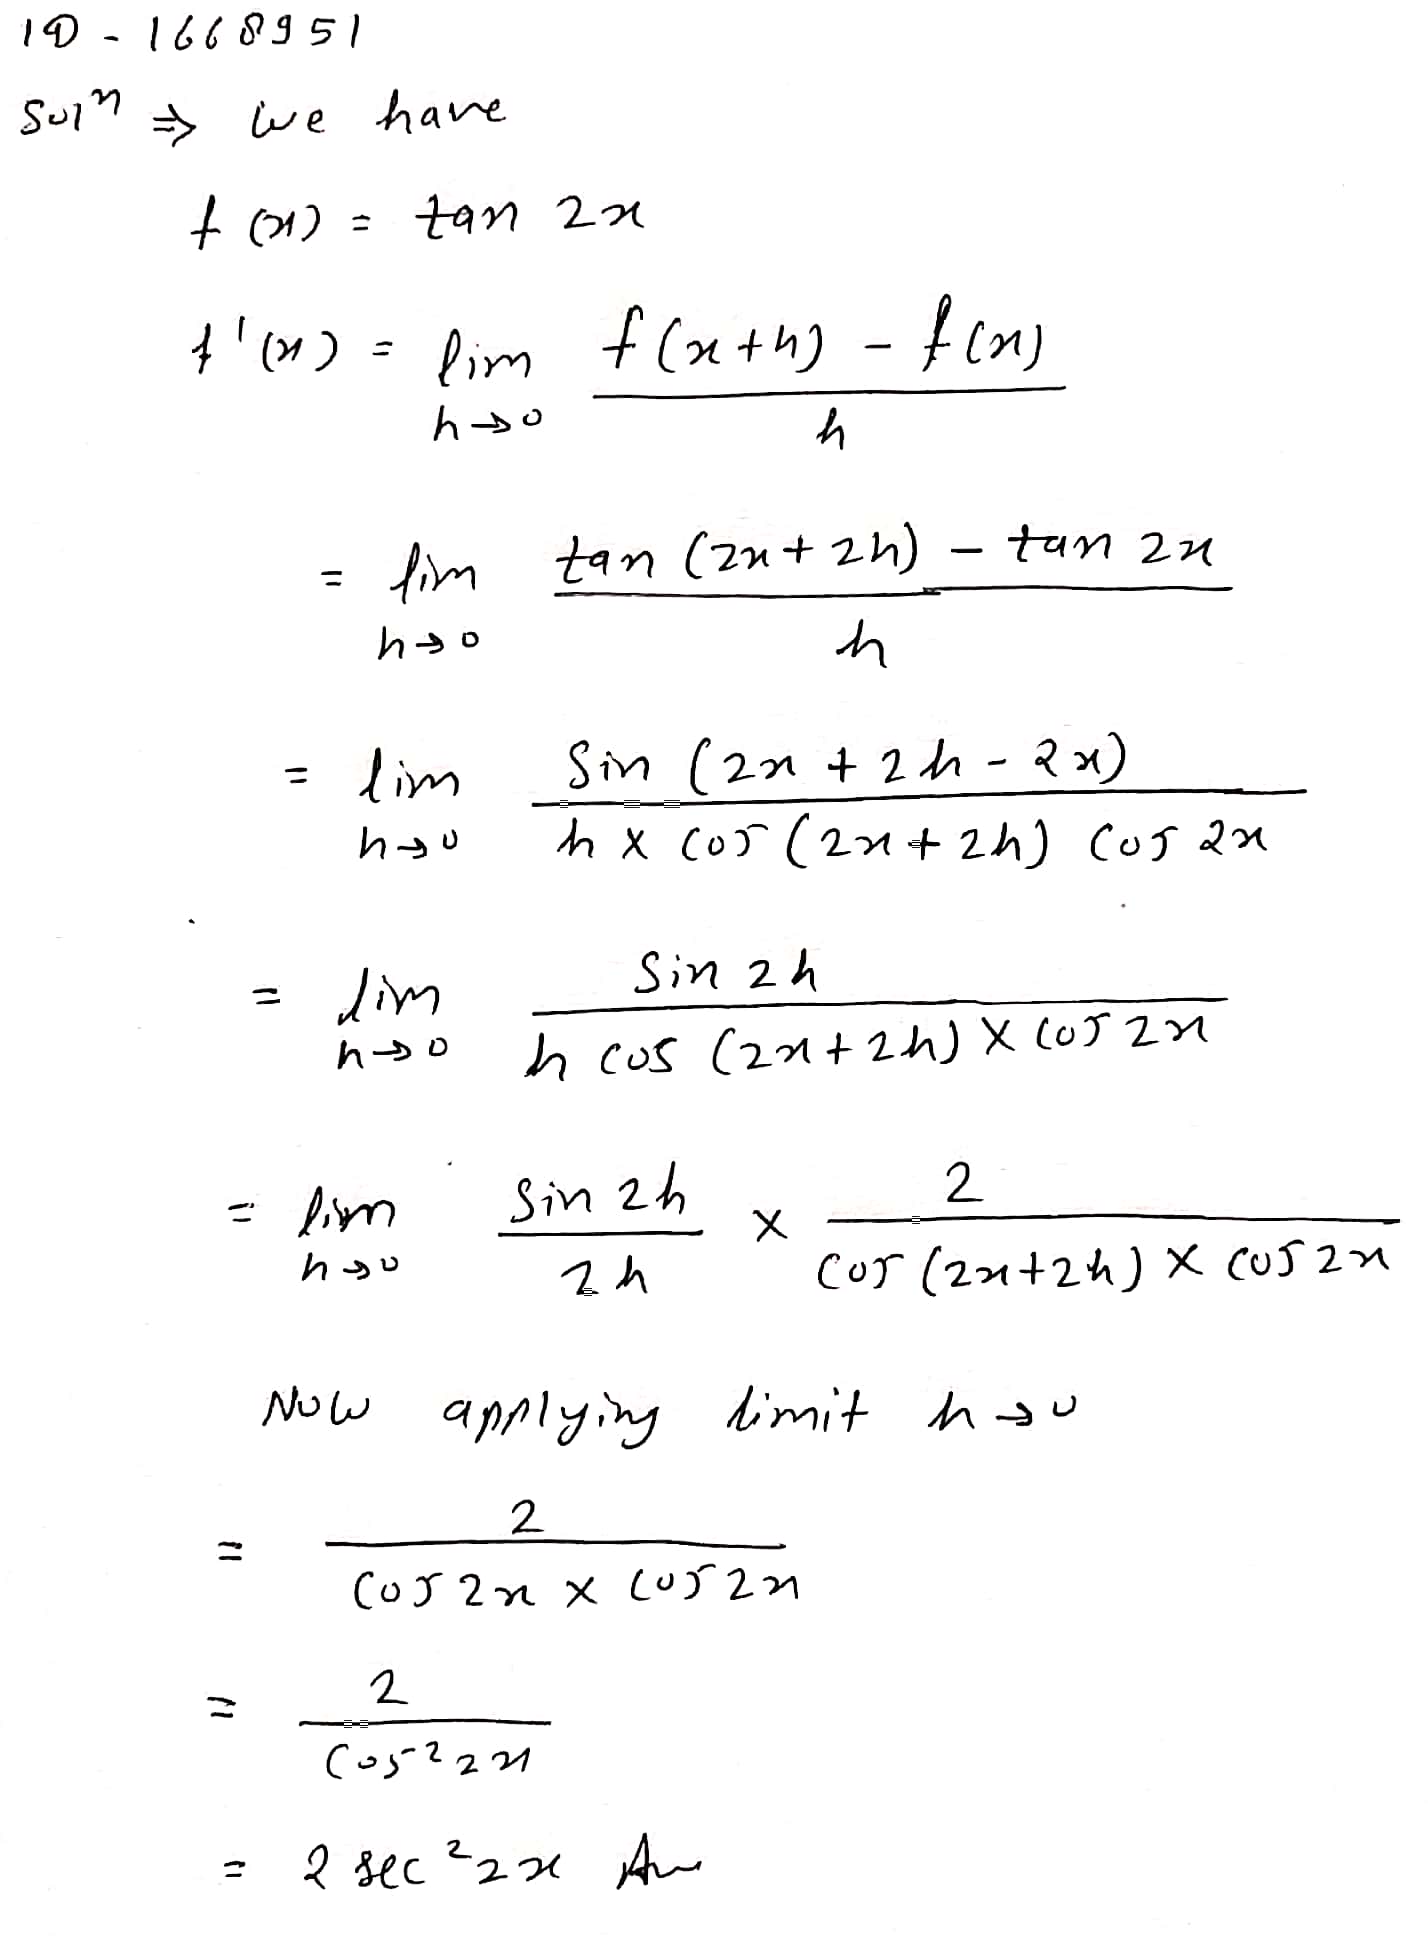 ID - 1668951
Solⁿ ⇒ we have
f(x) = tan 2x
f'(x) = lim h→0 (f(x+h) - f(x)) / h
= lim h→0 (tan (2x+2h) - tan 2x) / h
= lim h→0 Sin (2x + 2h - 2x) / (h × cos (2x+2h) cos 2x)
= lim h→0 Sin 2h / (h cos (2x+2h) × cos 2x)
= lim h→0 Sin 2h / 2h × 2 / (cos (2x+2h) × cos 2x)
Now applying limit h→0
= 2 / (cos 2x × cos 2x)
= 2 / cos² 2x
= 2 sec² 2x Ans